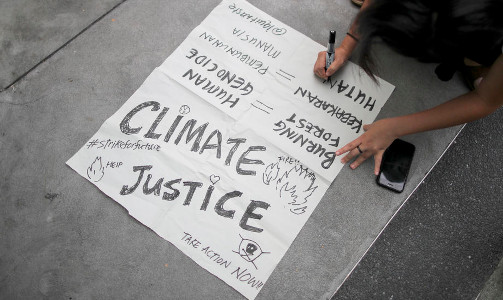 BURNING
FOREST
=
HUMAN
GENOCIDE
KEBAKARAN
HUTAN
=
PEMBUNUHAN
MANUSIA
CLIMATE
#strikeforfuture
HELP
JUSTICE
TAKE ACTION NOW!!